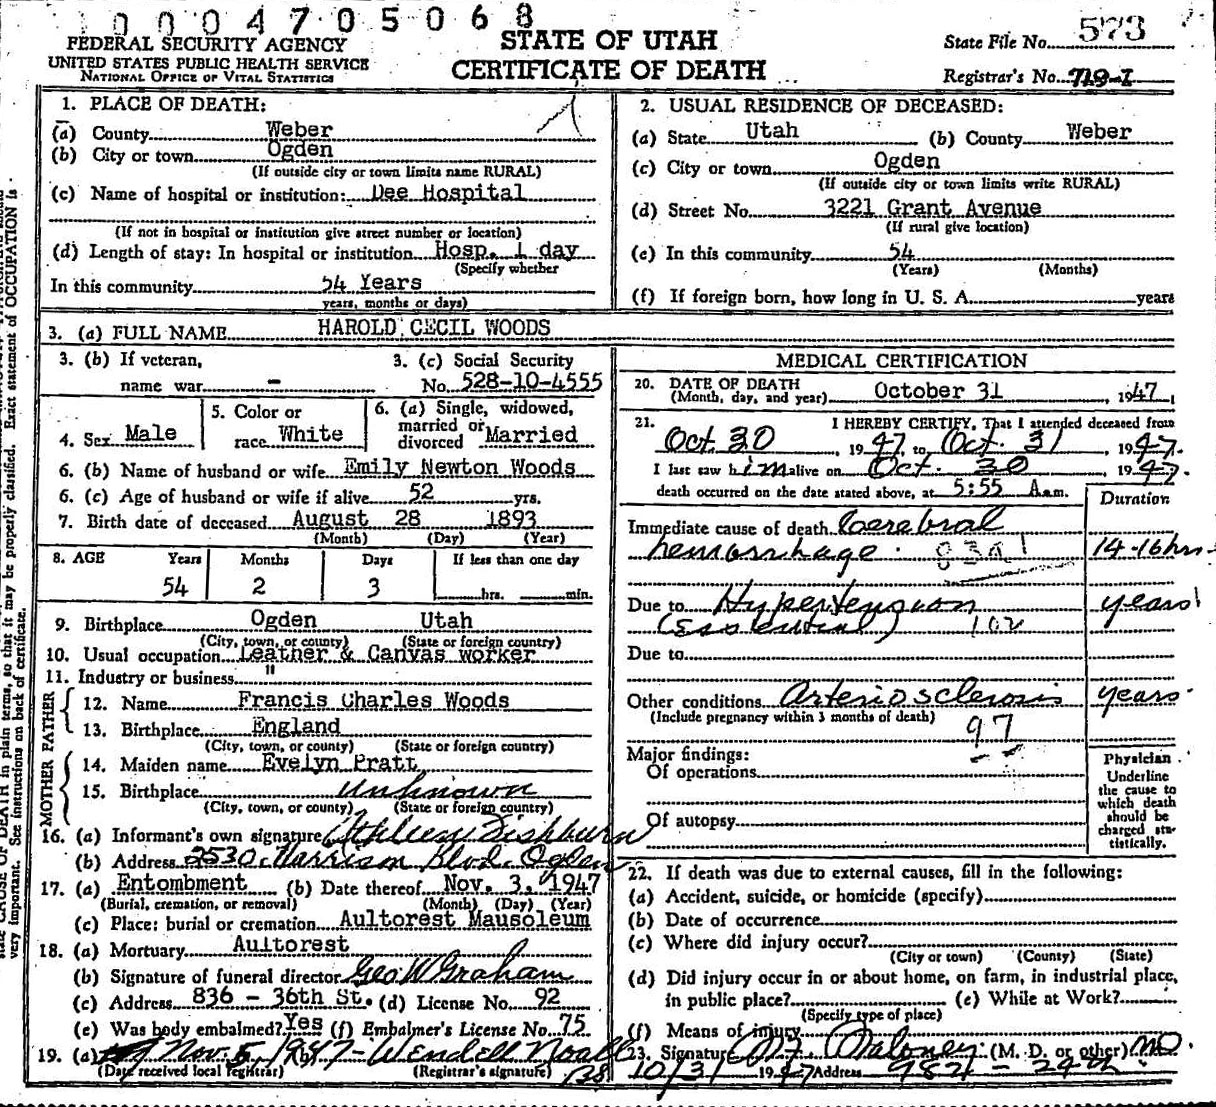 0004705068
FEDERAL SECURITY AGENCY
UNITED STATES PUBLIC HEALTH SERVICE
NATIONAL OFFICE OF VITAL STATISTICS
STATE OF UTAH
CERTIFICATE OF DEATH
State File No. 573
Registrar's No. 719-I
1. PLACE OF DEATH:
(a) County Weber
(b) City or town Ogden
(If outside city or town limits name RURAL)
(c) Name of hospital or institution: Dee Hospital
(If not in hospital or institution give street number or location)
(d) Length of stay: In hospital or institution Hosp. 1 day
(Specify whether
In this community 54 Years
years, months or days)
2. USUAL RESIDENCE OF DECEASED:
(a) State Utah (b) County Weber
(c) City or town Ogden
(If outside city or town limits write RURAL)
(d) Street No. 3221 Grant Avenue
(If rural give location)
(e) In this community 54
(Years) (Months)
(f) If foreign born, how long in U. S. A. years
3. (a) FULL NAME HAROLD CECIL WOODS
3. (b) If veteran,
name war -
3. (c) Social Security
No. 528-10-4555
4. Sex Male
5. Color or
race White
6. (a) Single, widowed,
married or
divorced Married
6. (b) Name of husband or wife Emily Newton Woods
6. (c) Age of husband or wife if alive 52 yrs.
7. Birth date of deceased August 28 1893
(Month) (Day) (Year)
8. AGE Years Months Days If less than one day
54 2 3 hrs. min.
9. Birthplace Ogden Utah
(City, town, or county) (State or foreign country)
10. Usual occupation Leather & Canvas worker
11. Industry or business "
FATHER
12. Name Francis Charles Woods
13. Birthplace England
(City, town, or county) (State or foreign country)
MOTHER
14. Maiden name Evelyn Pratt
15. Birthplace Unknown
(City, town, or county) (State or foreign country)
16. (a) Informant's own signature
(b) Address 2530 Harrison Blvd. Ogden
17. (a) Entombment (b) Date thereof Nov. 3, 1947
(Burial, cremation, or removal) (Month) (Day) (Year)
(c) Place: burial or cremation Aultorest Mausoleum
18. (a) Mortuary Aultorest
(b) Signature of funeral director Geo W Graham
(c) Address 836 - 36th St. (d) License No. 92
(e) Was body embalmed? Yes (f) Embalmer's License No. 75
19. (a) Nov 5, 1947 - (b) Wendell Noall
(Date received local registrar) (Registrar's signature)
MEDICAL CERTIFICATION
20. DATE OF DEATH
(Month, day, and year) October 31, 1947
21. I HEREBY CERTIFY, That I attended deceased from
Oct 30, 1947, to Oct. 31, 1947.
I last saw him alive on Oct. 30 1947.
death occurred on the date stated above, at 5:55 A.m.
Duration
Immediate cause of death Cerebral
hemorrhage. 14-16 hrs
Due to Hypertension years
(Essential) 102
Due to
Other conditions Arteriosclerosis years
(Include pregnancy within 3 months of death)
97
Major findings:
Of operations
Of autopsy
Physician
Underline
the cause to
which death
should be
charged sta-
tistically.
22. If death was due to external causes, fill in the following:
(a) Accident, suicide, or homicide (specify)
(b) Date of occurrence
(c) Where did injury occur?
(City or town) (County) (State)
(d) Did injury occur in or about home, on farm, in industrial place,
in public place? (e) While at Work?
(Specify type of place)
(f) Means of injury
23. Signature Maloney (M. D. or other) MD.
10/31 1947 Address 24th